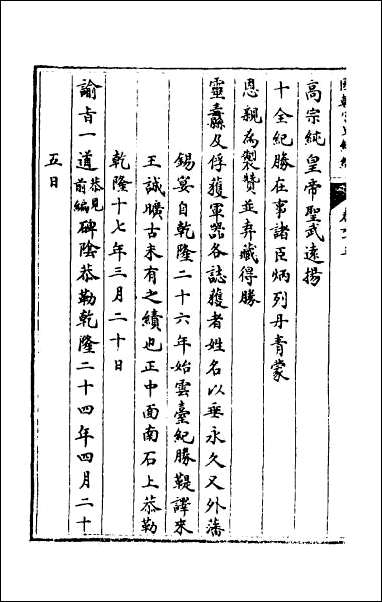 國朝宮史續編 卷六十五
高宗純皇帝聖武遠揚
十全紀勝在事諸臣炳列丹青蒙
恩親為製贊並弆藏得勝
靈纛及俘獲軍器各誌獲者姓名以垂永久又外藩
錫宴自乾隆二十六年始雲臺紀勝鞮譯來
王誠曠古未有之績也正中面南石上恭勒
乾隆十七年三月二十日
諭旨一道恭見前編碑陰恭勒乾隆二十四年四月二十
五日